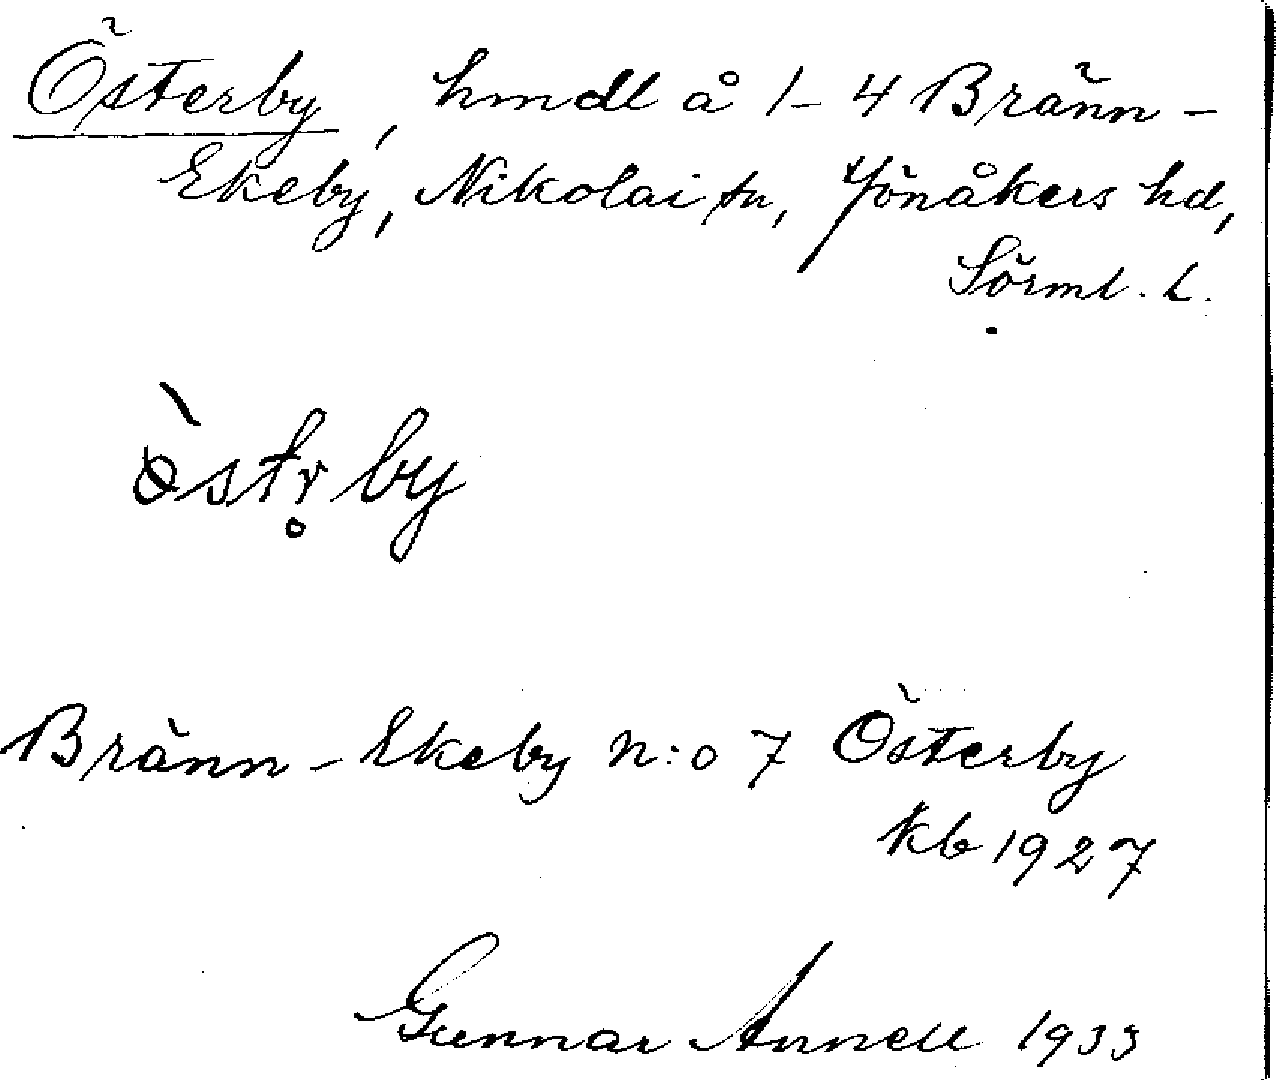 Österby, hmdl å 1–4 Bränn-
Ekeby, Nikolai sn, Jönåkers hd,
Sörml. l.
ø̀str̥by
Bränn-Ekeby n:o 7 Österby
kb 1927
Gunnar Annell 1933